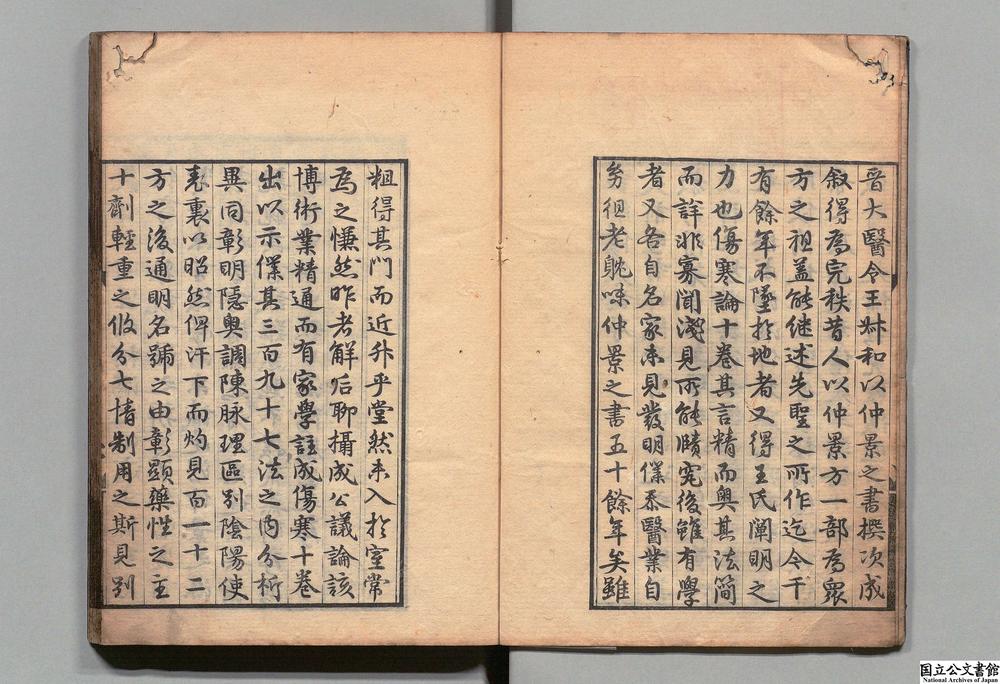 晉大醫令王叔和以仲景之書撰次成
叙得為完秩昔人以仲景方一部為衆
方之祖盖能继述先聖之所作迄今千
有餘年不墜扵地者又得王氏闡明之
力也傷寒論十卷其言精而奥其法簡
而詳非寡聞淺見所能賾究後雖有學
者又各自名家未見發明僕忝醫業自
㓜徂老躭味仲景之書五十餘年矣雖
粗得其門而近升乎堂然未入扵室常
為之慊然昨者解后聊攝成公議論該
博術業精通而有家學註成傷寒十卷
出以示僕其三百九十七法之内分析
異同彰明隠奥調陳脉理區别隂陽使
表裏以昭然俾汗下而灼見百一十二
方之後通明名號之由彰顯藥性之主
十劑輕重之攸分七情制用之斯見别
国立公文書館
National Archives of Japan